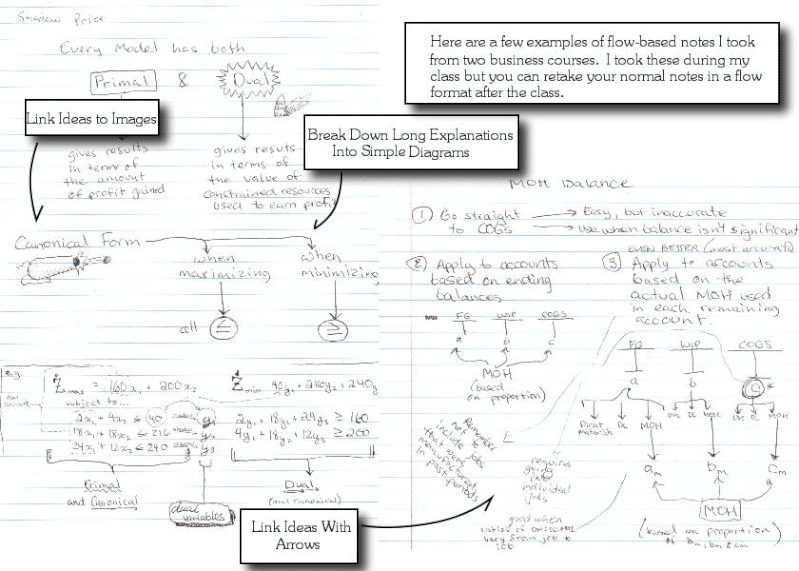 Shadow Price
Every Model has both
Primal & Dual
Here are a few examples of flow-based notes I took
from two business courses. I took these during my
class but you can retake your normal notes in a flow
format after the class.
Link Ideas to Images
Break Down Long Explanations
Into Simple Diagrams
gives results
in terms of
the amount
of profit gained
gives results
in terms of
the value of
constrained resources
used to earn profit
Canonical Form
when
maximizing
when
minimizing
all ≤
≥
e.g.
Z max = 160x₁ + 200x₂
subject to...
2x₁ + 4x₂ ≤ 40 y₁
18x₁ + 18x₂ ≤ 216 y₂
24x₁ + 12x₂ ≤ 240 y₃
Primal
and Canonical
dual
variables
Z min 40y₁ + 216y₂ + 240y₃
2y₁ + 18y₂ + 24y₃ ≥ 160
4y₁ + 18y₂ + 12y₃ ≥ 200
Dual
(and canonical)
Link Ideas With
Arrows
MOH Balance
1 Go straight
to COGS
Easy, but inaccurate
use when balance isn't significant
2 Apply to accounts
based on ending
balances
FG WIP COGS
a b c
MOH
(based
on proportion)
EVEN BETTER (most accurate)
3 Apply to accounts
based on the
actual MOH used
in each remaining
account.
FG WIP COGS
a b c
Direct
materials
DL MOH
DM DL MOH
DM DL MOH
aₘ bₘ cₘ
MOH
(based on proportion
of aₘ, bₘ, & cₘ)
Remember
not to
include jobs
that were
manufactured
in past periods
requires
going
into
individual
jobs
good when
vary from job to
job